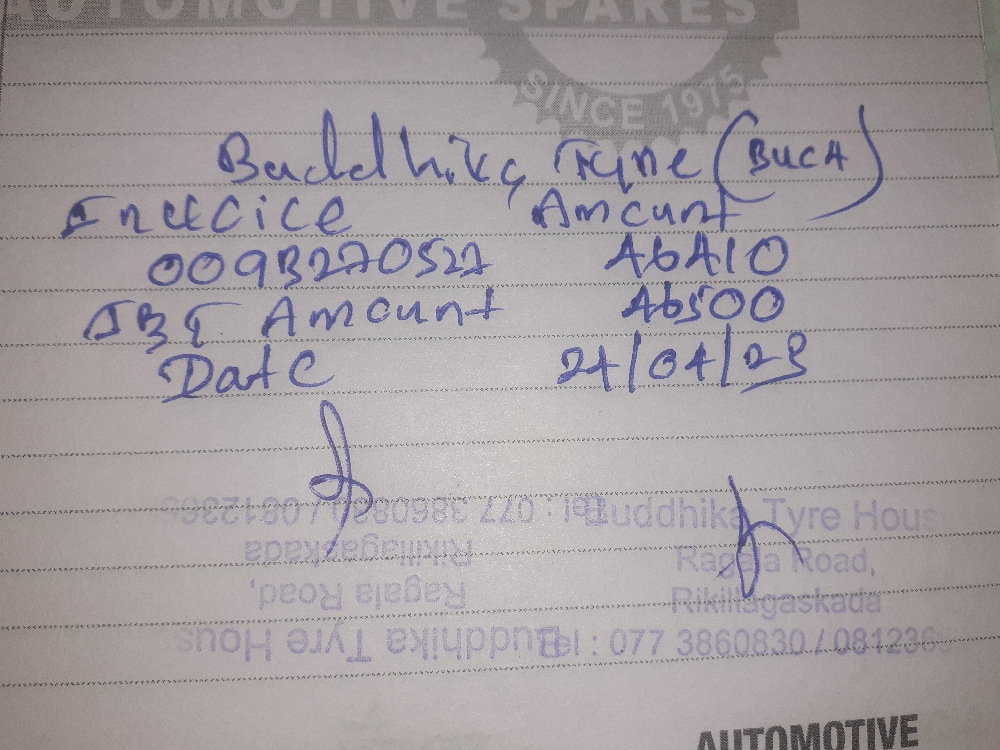 AUTOMOTIVE SPARES
SINCE 1975
Buddhika Tyre (BUCA)
Invoice Amount
0093270527 46410
IBT Amount 46500
Date 24/04/23
Buddhika Tyre Hous
Ragala Road,
Rikillagaskada
Tel : 077 3860830 / 081236
Buddhika Tyre Hous
Ragala Road,
Rikillagaskada
Tel : 077 3860830 / 081236
AUTOMOTIVE